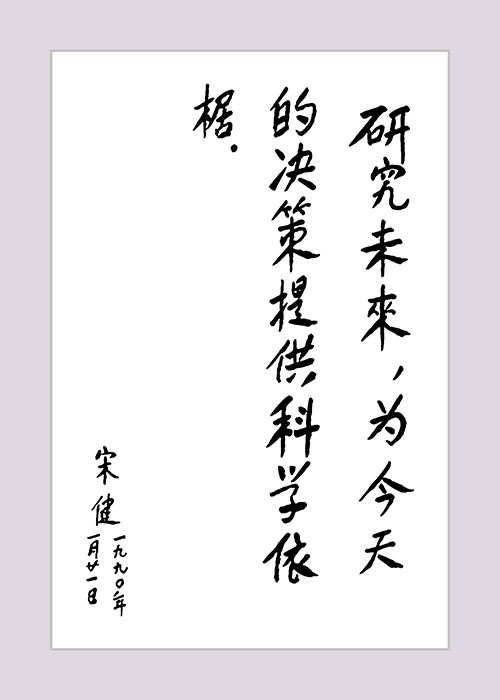 研究未來，为今天
的决策提供科学依
椐．
宋健
一九九〇年
一月廿一日